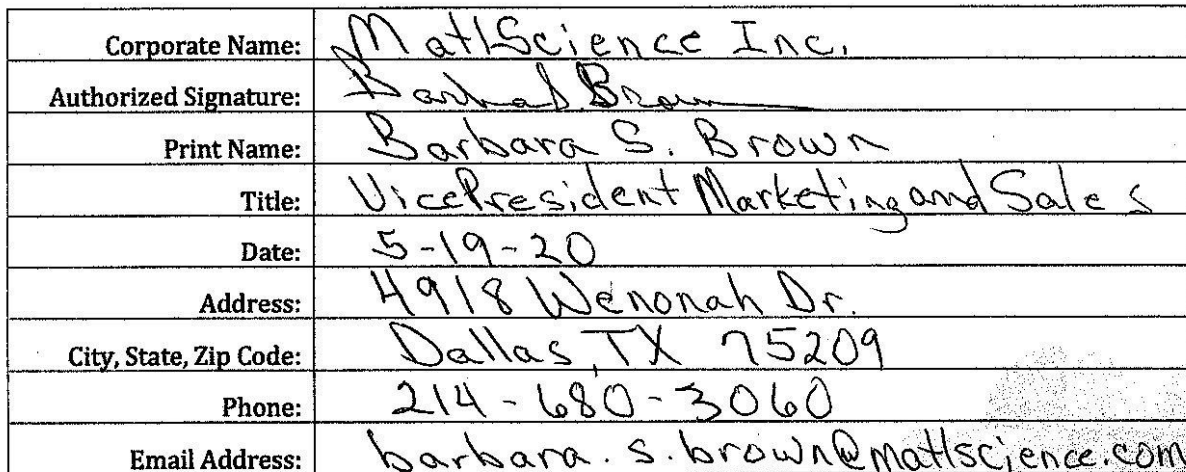 Corporate Name: MatlScience Inc.
Authorized Signature: Barbara S. Brown
Print Name: Barbara S. Brown
Title: Vice President Marketing and Sales
Date: 5-19-20
Address: 4918 Wenonah Dr.
City, State, Zip Code: Dallas, TX 75209
Phone: 214-680-3060
Email Address: barbara.s.brown@matlscience.com